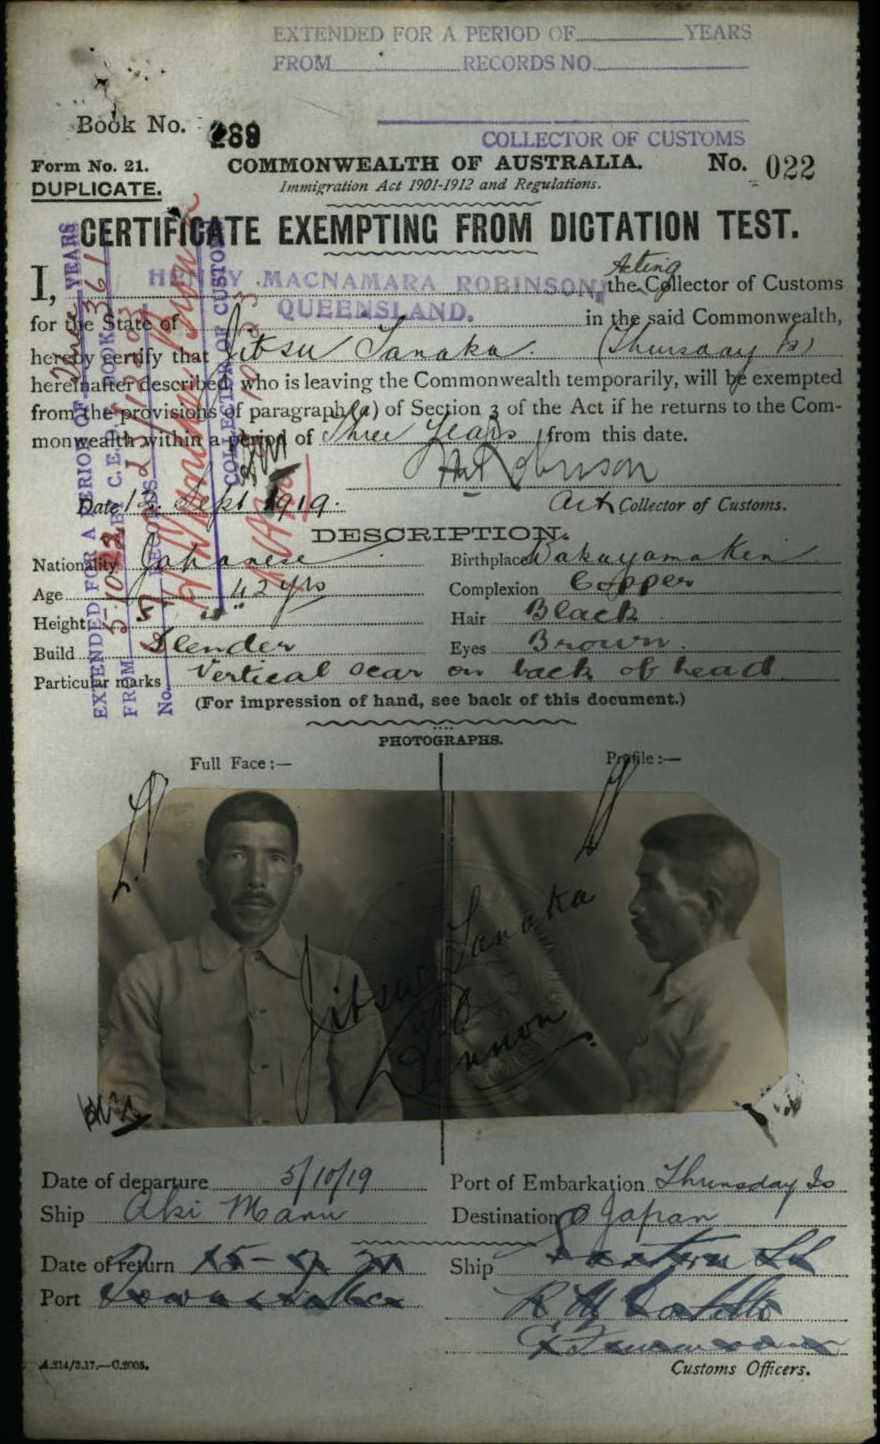 EXTENDED FOR A PERIOD OF YEARS
FROM RECORDS NO.
Book No. 289
COLLECTOR OF CUSTOMS
Form No. 21. COMMONWEALTH OF AUSTRALIA. No. 022
DUPLICATE. Immigration Act 1901-1912 and Regulations.
CERTIFICATE EXEMPTING FROM DICTATION TEST.
Acting
I, HENRY MACNAMARA ROBINSON, the Collector of Customs
for the State of QUEENSLAND. in the said Commonwealth,
hereby certify that Jitsu Tanaka. (Thursday Is)
hereinafter described, who is leaving the Commonwealth temporarily, will be exempted
from the provisions of paragraph (a) of Section 3 of the Act if he returns to the Com-
monwealth within a period of three years from this date.
HM Robinson
Date 12 Sept 1919. Act Collector of Customs.
DESCRIPTION.
Nationality Japanese Birthplace Wakayama Ken
Age 42 yrs Complexion Copper
Height 5' Hair Black
Build Slender Eyes Brown.
Particular marks Vertical scar on back of head
(For impression of hand, see back of this document.)
PHOTOGRAPHS.
Full Face:— Profile:—
Jitsu Tanaka
Date of departure 5/10/19 Port of Embarkation Thursday Is
Ship Aki Maru Destination Japan
Date of return Ship
Port
A.214/3.17.—C.2005. Customs Officers.
EXTENDED FOR A PERIOD OF YEARS
FROM 5-10-22 C.E.D.T. BOOK 361
No. RECORDS
COLLECTOR OF CUSTOMS